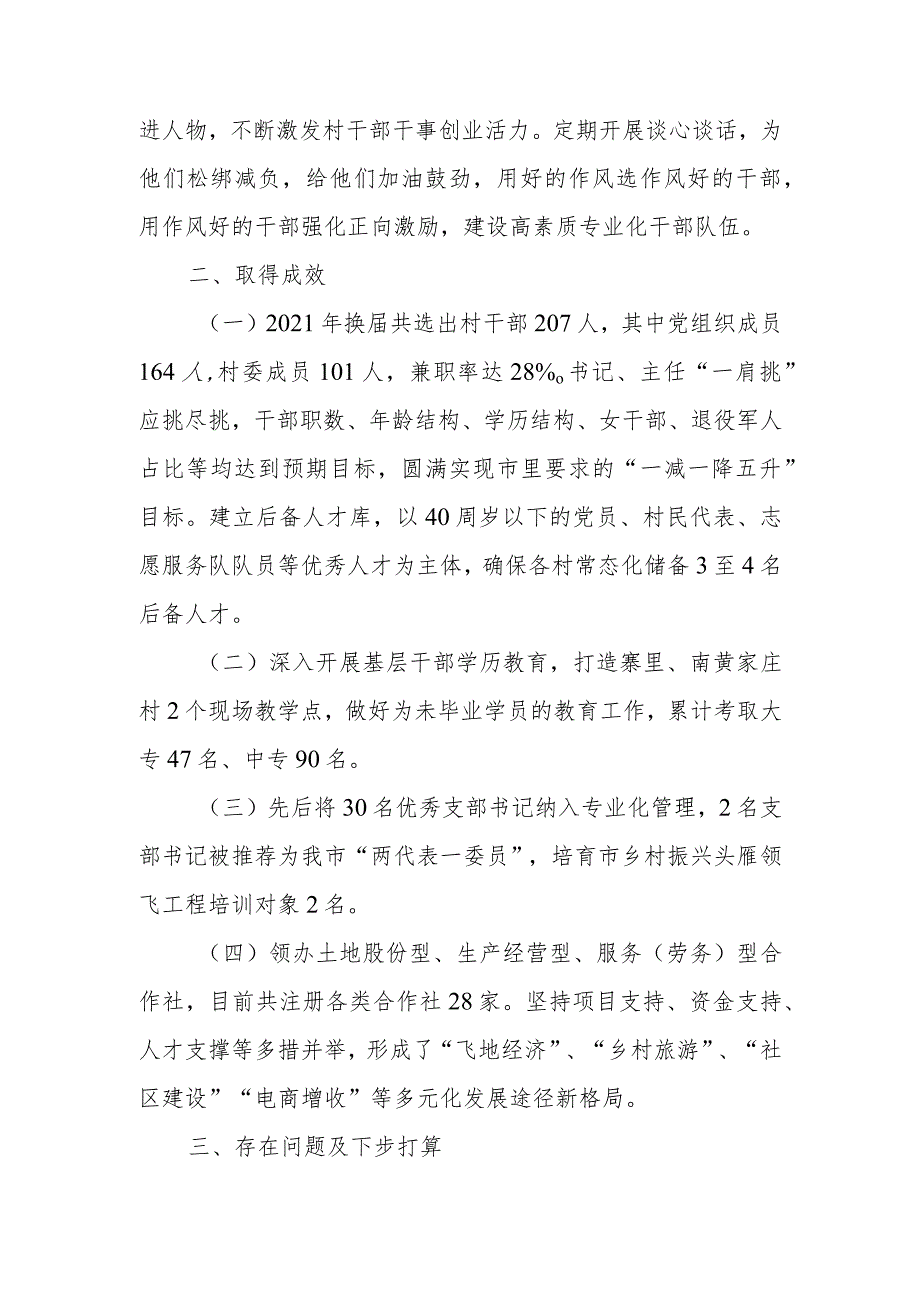 进人物，不断激发村干部干事创业活力。定期开展谈心谈话，为
他们松绑减负，给他们加油鼓劲，用好的作风选作风好的干部，
用作风好的干部强化正向激励，建设高素质专业化干部队伍。
二、取得成效
（一）2021年换届共选出村干部207人，其中党组织成员
164人,村委成员101人，兼职率达28%o书记、主任“一肩挑”
应挑尽挑，干部职数、年龄结构、学历结构、女干部、退役军人
占比等均达到预期目标，圆满实现市里要求的“一减一降五升”
目标。建立后备人才库，以40周岁以下的党员、村民代表、志
愿服务队队员等优秀人才为主体，确保各村常态化储备3至4名
后备人才。
（二）深入开展基层干部学历教育，打造寨里、南黄家庄
村2个现场教学点，做好为未毕业学员的教育工作，累计考取大
专47名、中专90名。
（三）先后将30名优秀支部书记纳入专业化管理，2名支
部书记被推荐为我市“两代表一委员”，培育市乡村振兴头雁领
飞工程培训对象2名。
（四）领办土地股份型、生产经营型、服务（劳务）型合
作社，目前共注册各类合作社28家。坚持项目支持、资金支持、
人才支撑等多措并举，形成了“飞地经济”、“乡村旅游”、“社
区建设”“电商增收”等多元化发展途径新格局。
三、存在问题及下步打算